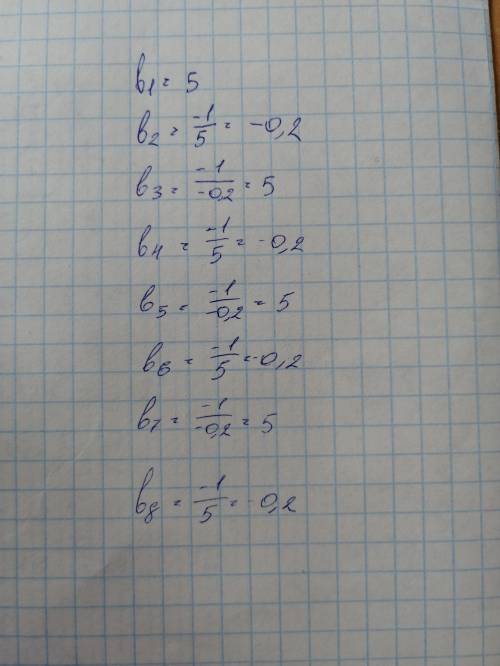 b1 = 5
b2 = -1/5 = -0,2
b3 = -1/-0,2 = 5
b4 = -1/5 = -0,2
b5 = -1/-0,2 = 5
b6 = -1/5 = -0,2
b7 = -1/-0,2 = 5
b8 = -1/5 = -0,2